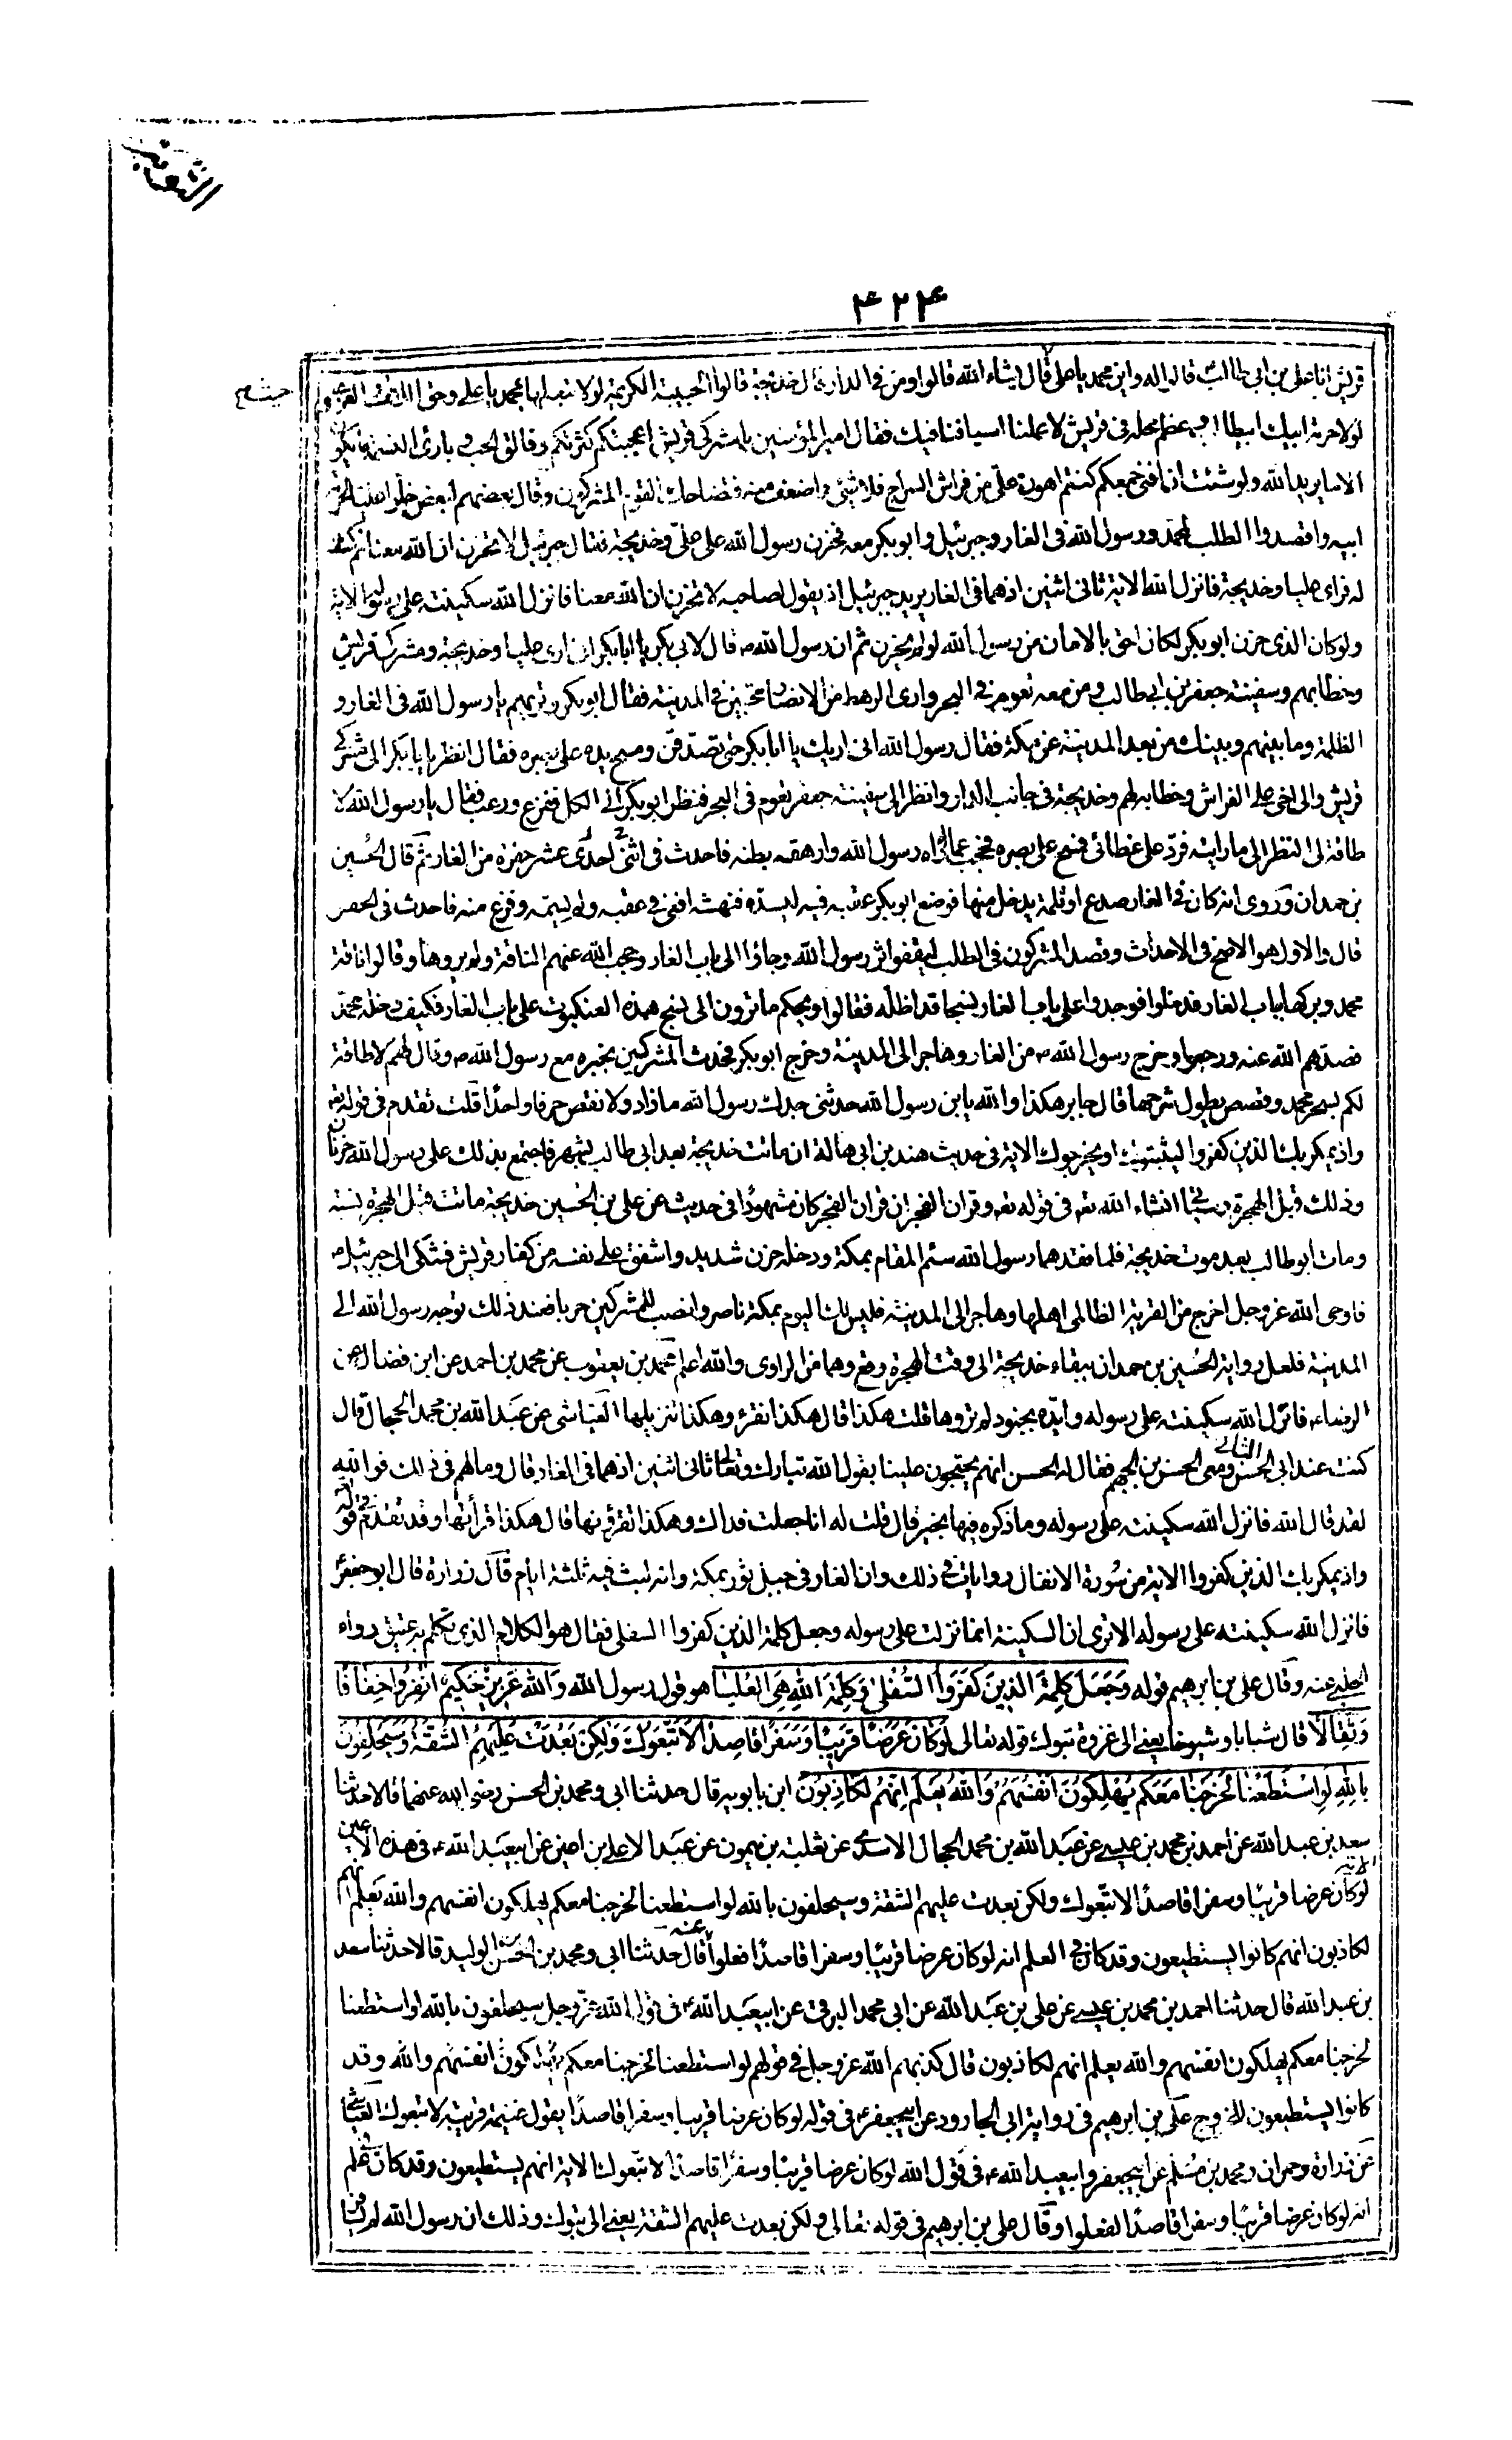 ۴۲۴
قريش انا علی بن ابی طالب قالوا له واين محمد يا علی قال حيث يشاء الله قالوا ومن فی الدار قال خديجة قالوا الحبيبة الكريمة لولا تبعلها بمحمد يا علی وحق اللات والعزى
لولا حرمة ابيك ابيطالب وعظم محله فی قريش لاعملنا اسيافنا فيك فقال اميرالمؤمنين يا مشركی قريش اعجبتكم كثرتكم وفالق الحب وبارئ النسمة ما يكون
الا ما يريد الله ولو شئت ان افنی جمعكم كنتم اهون علی من فراش السراج فلا شیء اضعف منه فتضاحك القوم المشركون وقال بعضهم لبعض خلوا عليا لحرمة
ابيه واقصدوا الطلب لمحمد ورسول الله فی الغار وجبرئيل وابوبكر معه فحزن رسول الله علی علی وخديجة فقال جبرئيل لا تحزن ان الله معنا ثم كشف
له فرای عليا وخديجة فانزل الله الاية ثانی اثنين اذ هما فی الغار يريد جبرئيل اذ يقول لصاحبه لا تحزن ان الله معنا فانزل الله سكينته علی رسوله الاية
ولو كان الذی حزن ابوبكر لكان احق بالامان من رسول الله لو لم يحزن ثم ان رسول الله ص قال لابی بكر يا ابابكر انی اری عليا وخديجة ومشركی قريش
وخطابهم وسفينة جعفر بن ابی طالب ومن معه تعوم فی البحر واری الرهط من الانصار مجتبين فی المدينة فقال ابوبكر وتريهم يا رسول الله فی الغار و
الظلمة وما بينهم وبينك من بعد المدينة عن مكة فقال رسول الله انی اريك يا ابابكر حتی تصدقن ومسح يده علی بصره فقال انظر يا بابكر الی مشركی
قريش والی اخی علی الفراش وخطابه لهم وخديجة فی جانب الدار وانظر الی سفينة جعفر تعوم فی البحر فنظر ابوبكر الی الكل ففزع ورعب فقال يا رسول الله لا
طاقة لی النظر الی ما رايته فرد علی غطائی فمسح علی بصره فحجب عما اراه رسول الله وارهقه بطنه فاحدث فی اثنی احدی عشر حفرة من الغار ثم قال الحسين
بن حمدان وروی انه كان فی الغار صدع او ثلمة يدخل منها فوضع ابوبكر عقبه فيه ليسده فنهشه افعی فی عقبه ولم يسمه وفزع منه فاحدث فی الحفر
قال والاول هو الاصح فی الاحداث وقصد المشركون فی الطلب ليقفوا اثر رسول الله وجاؤا الی باب الغار وحجب الله عنهم الناقة ولم يروها وقالوا ناقة
محمد ومبركها بباب الغار فدخلوا فوجدوا علی باب الغار نسجا قد اظله فقالوا ويحكم ما ترون الی نسج هذه العنكبوت علی باب الغار فكيف دخله محمد
فصدهم الله عنه ورجعوا وخرج رسول الله ص من الغار وهاجر الی المدينة وخرج ابوبكر فحدث المشركين بخبره مع رسول الله ص وقال لهم لا طاقة
لكم بسحر محمد وقصص يطول شرحها قال جابر هكذا والله يا بن رسول الله حدثنی جدك رسول الله ما زاد ولا نقص حرفا واحدا قلت تقدم فی قوله تعالی
واذ يمكر بك الذين كفروا ليثبتوك او يخرجوك الاية فی حديث هند بن ابی هالة ان ماتت خديجة بعد ابی طالب بشهر فاجتمع بذلك علی رسول الله حزنان
وذلك قبل الهجرة وسيأتی انشاء الله تعه فی قوله تعه وقران الفجر ان قران الفجر كان مشهودا فی حديث عن علی بن الحسين خديجة ماتت قبل الهجرة بسنة
ومات ابوطالب بعد موت خديجة فلما فقدهما رسول الله سئم المقام بمكة ودخله حزن شديد واشفق علی نفسه من كفار قريش فشكی الی جبرئيل
فاوحی الله عز وجل اخرج من القرية الظالم اهلها وهاجر الی المدينة فليس لك اليوم بمكة ناصر وانصب للمشركين حربا فعند ذلك توجه رسول الله الی
المدينة فلعل رواية الحسين بن حمدان ببقاء خديجة الی وقت الهجرة وقع وهما من الراوی والله اعلم محمد بن يعقوب عن محمد بن احمد عن ابن فضال عن
الرضا ع فانزل الله سكينته علی رسوله وايده بجنود لم تروها قلت هكذا قال هكذا نقرء وهكذا تنزيلها العياشی عن عبد الله بن محمد الحجال قال
كنت عند ابی الحسن الثانی ومعی الحسن بن الجهم فقال له الحسن انهم يحتجون علينا بقول الله تبارك وتعالی ثانی اثنين اذ هما فی الغار قال وما لهم فی ذلك فوالله
لقد قال الله فانزل الله سكينته علی رسوله وما ذكره فيها بخير قال قلت له انا جعلت فداك وهكذا تقرؤنها قال هكذا قرأتها وقد تقدم فی قوله
واذ يمكر بك الذين كفروا الاية من سورة الانفال روايات فی ذلك وان الغار فی جبل ثور بمكة وانه لبث فيه ثلثة ايام قال زرارة قال ابوجعفر ع
فانزل الله سكينته علی رسوله الا تری ان السكينة انما نزلت علی رسوله وجعل كلمة الذين كفروا السفلی فقال هو الكلام الذی تكلم به عتيق رواه
الحلبی عنه وقال علی بن ابرهيم قوله وَجَعَلَ كَلِمَةَ الَّذِينَ كَفَرُوا السُّفْلی وَكَلِمَةُ اللهِ هِیَ الْعُلْيَا هو قول رسول الله وَاللهُ عَزِيزٌ حَكِيمٌ انْفِرُوا خِفَافًا
وَثِقَالًا قال شبابا وشيوخا يعنی الی غزوة تبوك قوله تعالی لَوْ كَانَ عَرَضًا قَرِيبًا وَسَفَرًا قَاصِدًا لَاتَّبَعُوكَ وَلَكِنْ بَعُدَتْ عَلَيْهِمُ الشُّقَّةُ وَسَيَحْلِفُونَ
بِاللهِ لَوِ اسْتَطَعْنَا لَخَرَجْنَا مَعَكُمْ يُهْلِكُونَ اَنْفُسَهُمْ وَاللهُ يَعْلَمُ اِنَّهُمْ لَكَاذِبُونَ ابن بابويه قال حدثنا ابی ومحمد بن الحسن رضی الله عنهما قالا حدثنا
سعد بن عبد الله عن احمد بن محمد بن عيسی عن عبد الله بن محمد الحجال الاسدی عن ثعلبة بن ميمون عن عبد الاعلی بن اعين عن ابيعبد الله ع فی هذه الاية
لو كان عرضا قريبا وسفرا قاصدا لاتبعوك ولكن بعدت عليهم الشقة وسيحلفون بالله لو استطعنا لخرجنا معكم يهلكون انفسهم والله يعلم انهم
لكاذبون انهم كانوا يستطيعون وقد كان فی العلم انه لو كان عرضا قريبا وسفرا قاصدا لفعلوا عنه قال حدثنا ابی ومحمد بن الحسن الوليد قالا حدثنا سعد
بن عبد الله قال حدثنا احمد بن محمد بن عيسی عن علی بن عبد الله عن ابی محمد البرقی عن ابيعبد الله ع فی قول الله عز وجل سيحلفون بالله لو استطعنا
لخرجنا معكم يهلكون انفسهم والله يعلم انهم لكاذبون قال كذبهم الله عز وجل فی قولهم لو استطعنا لخرجنا معكم يهلكون انفسهم والله وقد
كانوا يستطيعون للخروج علی بن ابرهيم فی رواية ابی الجارود عن ابيجعفر ع فی قوله لو كان عرضا قريبا وسفرا قاصدا يقول غنيمة قريبة لاتبعوك العياشی
عن زرارة وحمران ومحمد بن مسلم عن ابيجعفر وابيعبد الله ع فی قول الله لو كان عرضا قريبا وسفرا قاصدا لاتبعوك الاية انهم يستطيعون وقد كان فی علم
انه لو كان عرضا قريبا وسفرا قاصدا لفعلوا وقال علی بن ابرهيم فی قوله تعالی ولكن بعدت عليهم الشقة يعنی الی تبوك وذلك ان رسول الله لم